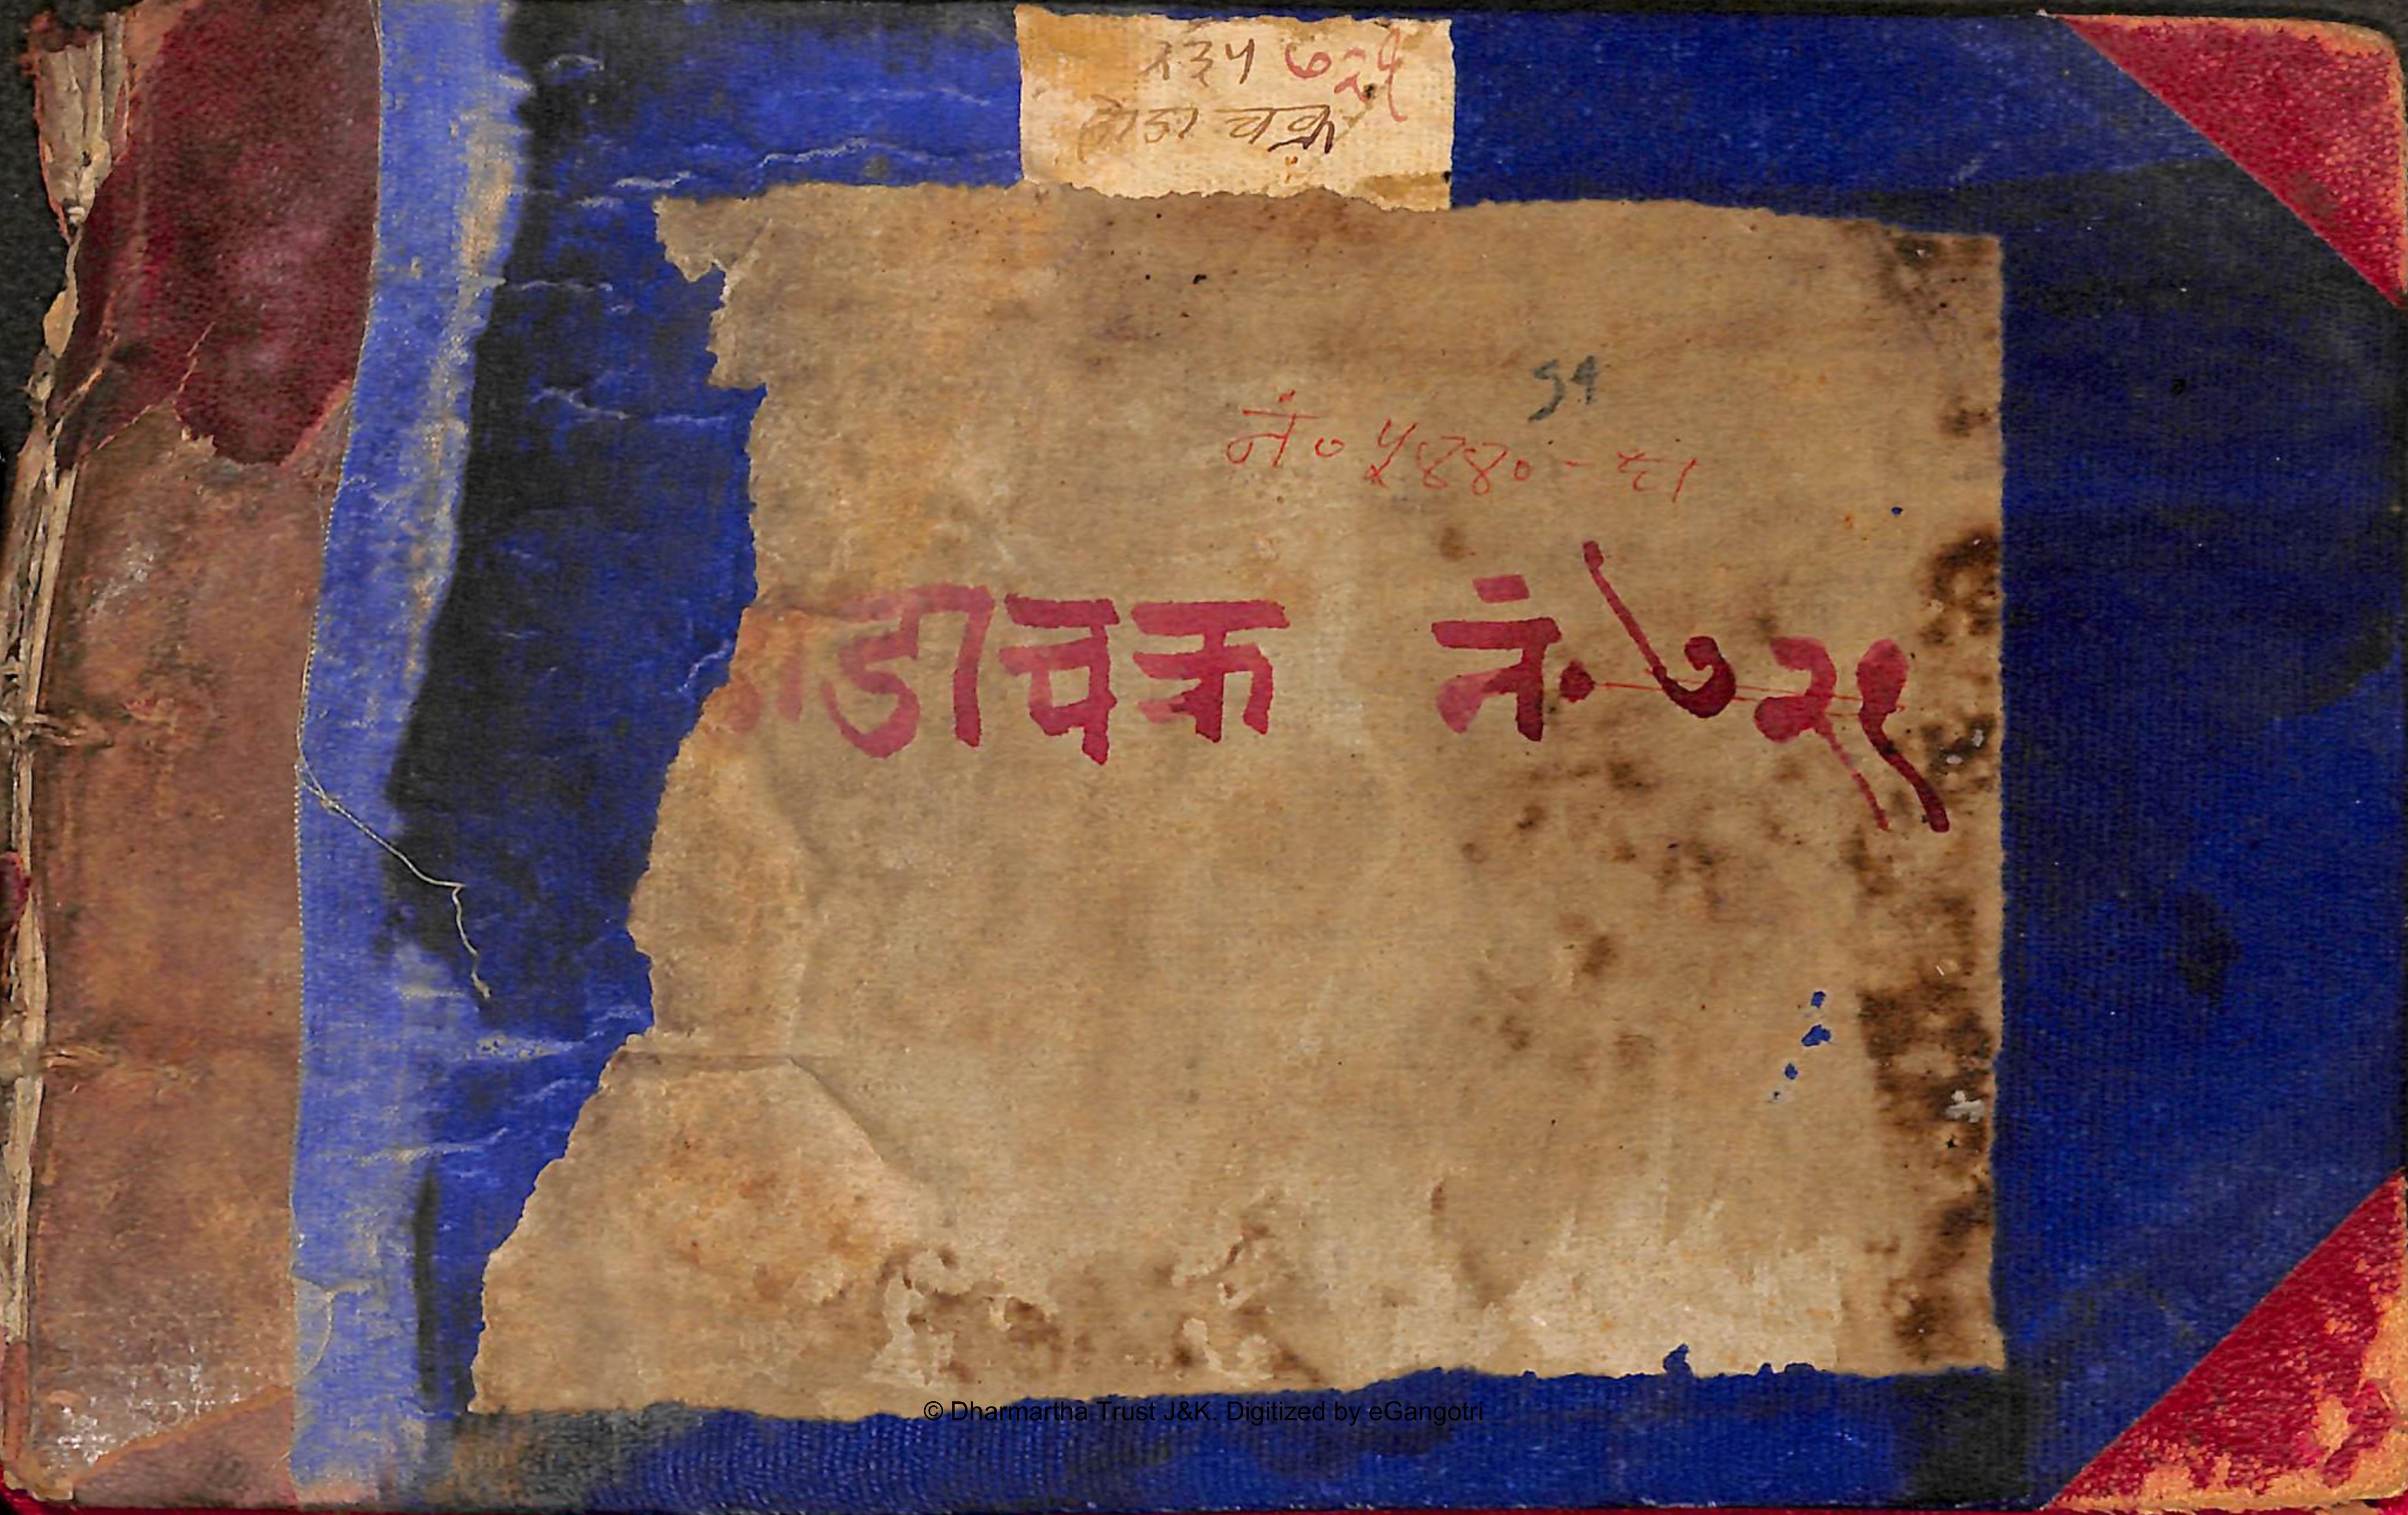 २३५ ७२१
५१
नं० ५४४०-घ।
नाडीचक्र नं० ७२१
© Dharmartha Trust J&K. Digitized by eGangotri